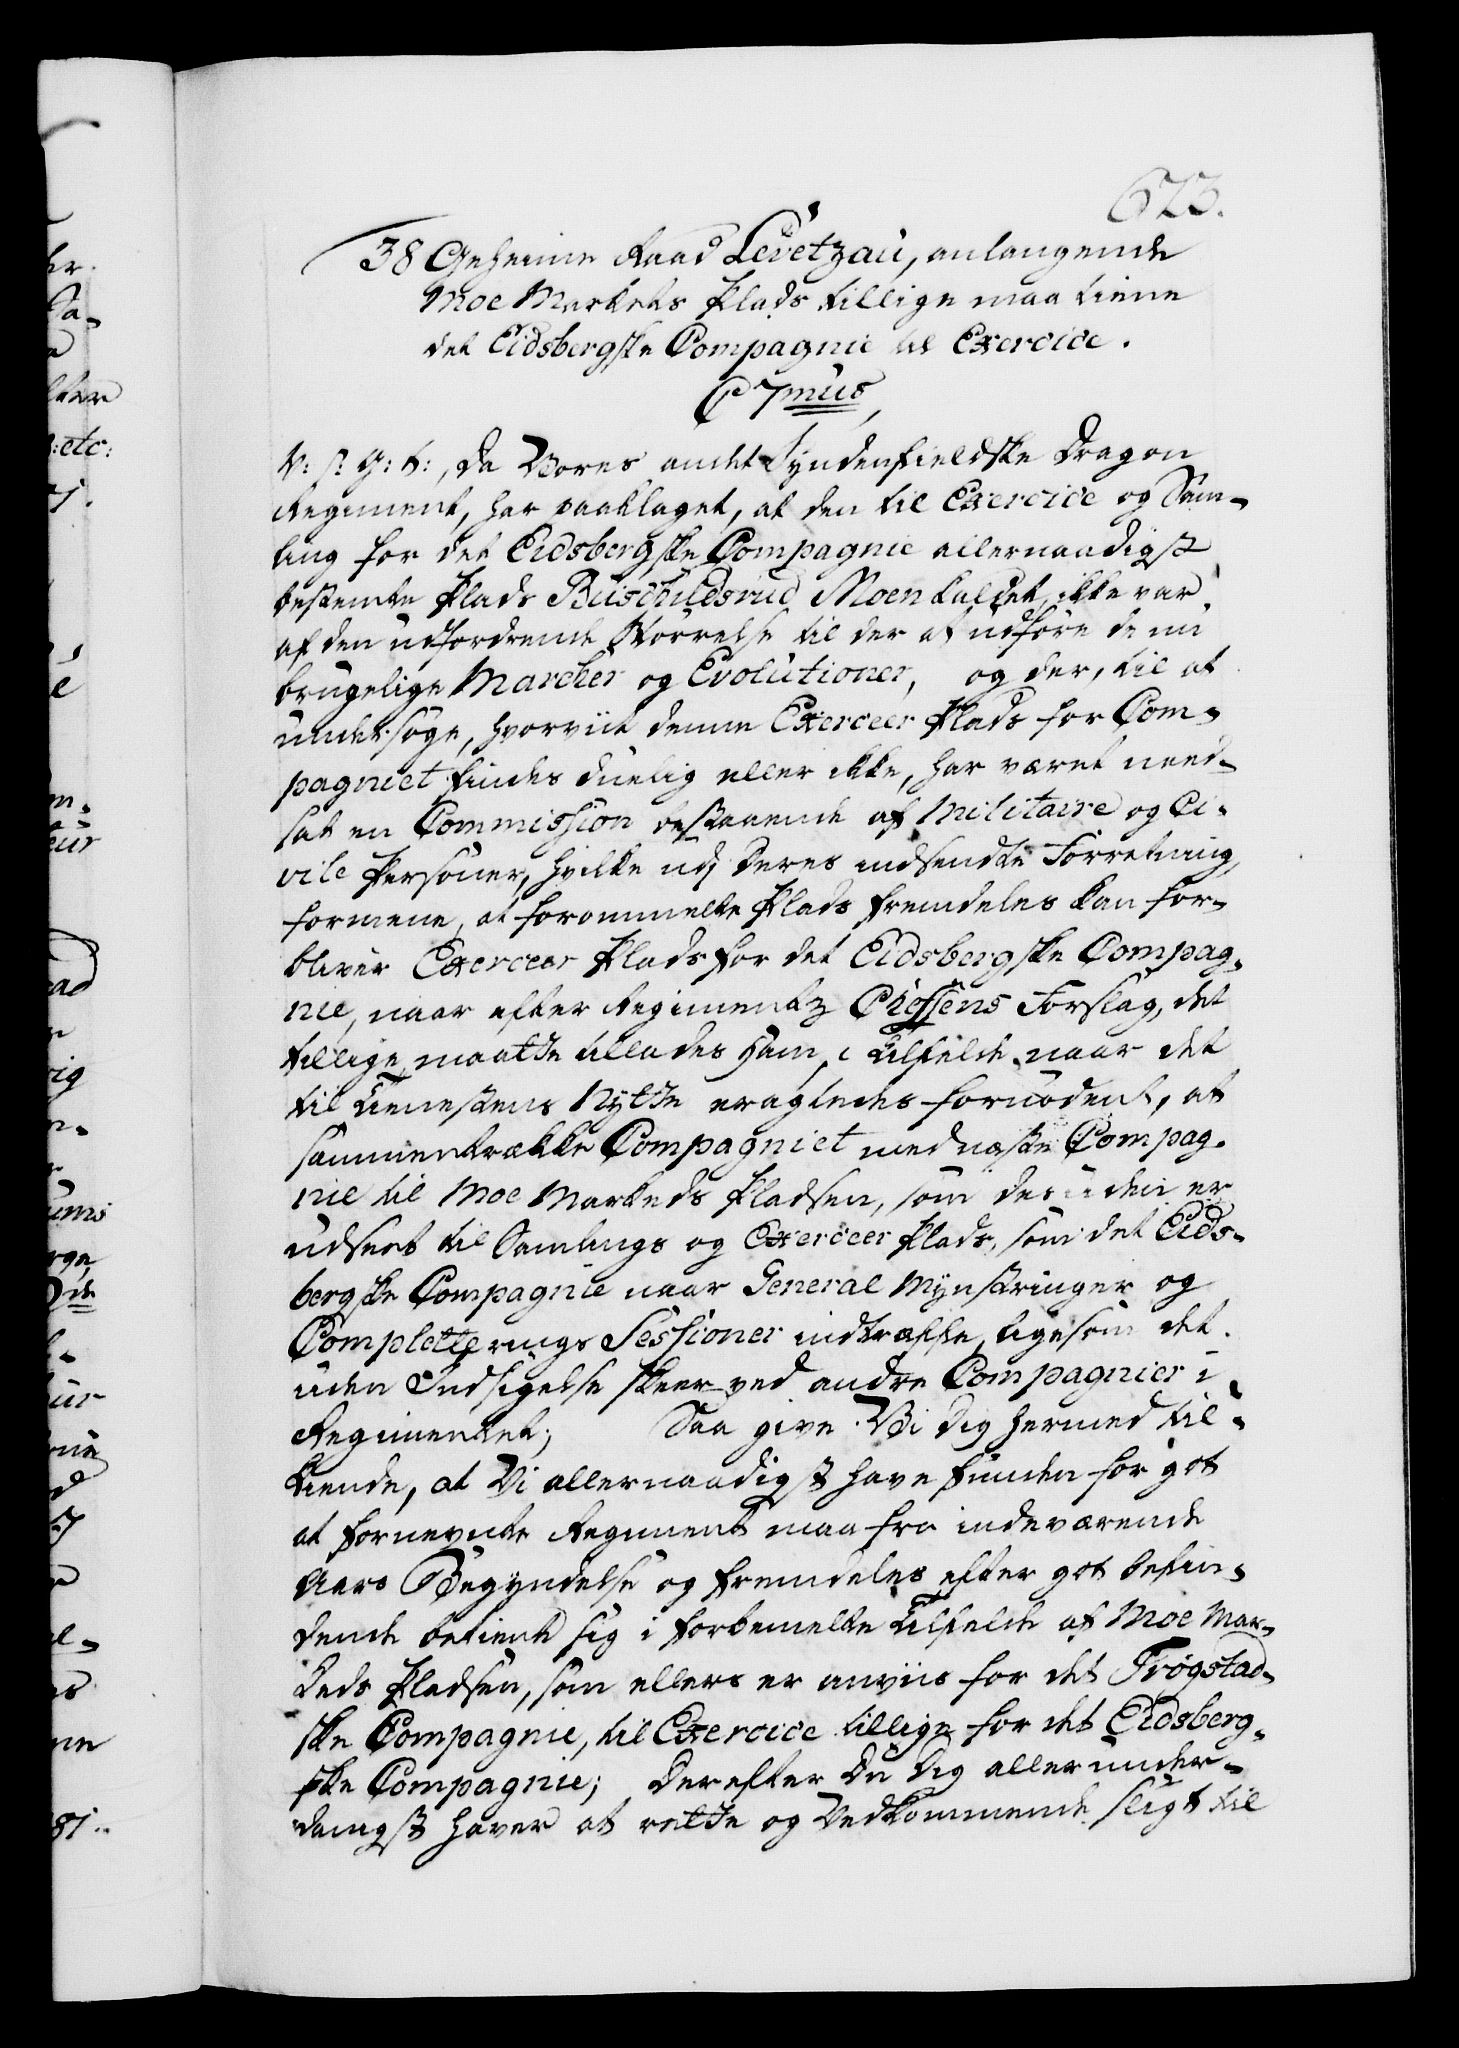 623.
38 Geheime Raad Levetzau, anlangende
Moe Markets Plads tillige maa tiene
det Eidsbergske Compagnie til Exercice.
C 7mus,
V: S: G: T:, Da Vores andet Syndenfieldske Dragon
Regiment, har paaklaget, at den til Exercice og Sam-
ling for det Eidsbergske Compagnie allernaadigst
bestemte Plads Buschuldsrud Moen kaldet, ikke var
af den udfordrende Størrelse til der at udføre de nu
brugelige Marcher og Evolutioner, og der, til at
undersøge, hvorviit denne Exerceer Plads for Com-
pagniet findes duelig eller ikke, har været need-
sat en Commission bestaaende af Militaire og Ci-
vile Personer, hvilke udj deres indsendte Forretning,
formene, at forommelte Plads fremdeles kan for-
blive Exerceer Plads for det Eidsbergske Compag-
nie, naar efter Regimentz Cheffens Forslag, det
tillige maatte tillades ham, i Tilfælde naar det
til Tienestens Nytte eragtedes fornødent, at
sammentrække Compagniet med næste Compag-
nie til Moe Markeds Pladsen, som desuden er
udseet til Samlings og Exerceer Plads, som det Eids-
bergske Compagnie naar General Mynstringer og
Completterings Sessioner indtræffe, ligesom det
uden Indsigelse skeer ved andre Compagnier i
Regimentet; Saa give Vi dig hermed til-
kiende, at Vi allernaadigst have funden for got
at fornevnte Regiment maa fra indeværende
Aars Begyndelse og fremdeles efter got befin-
dende betiene sig i forbemelte Tilfelde af Moe Mar-
keds Pladsen, som ellers er anviis for det Trøgstad-
ske Compagnie, til Exercice tillige for det Eidsberg-
ske Compagnie; Derefter Du Dig allerunder-
danigst haver at rette og Vedkommende sligt til